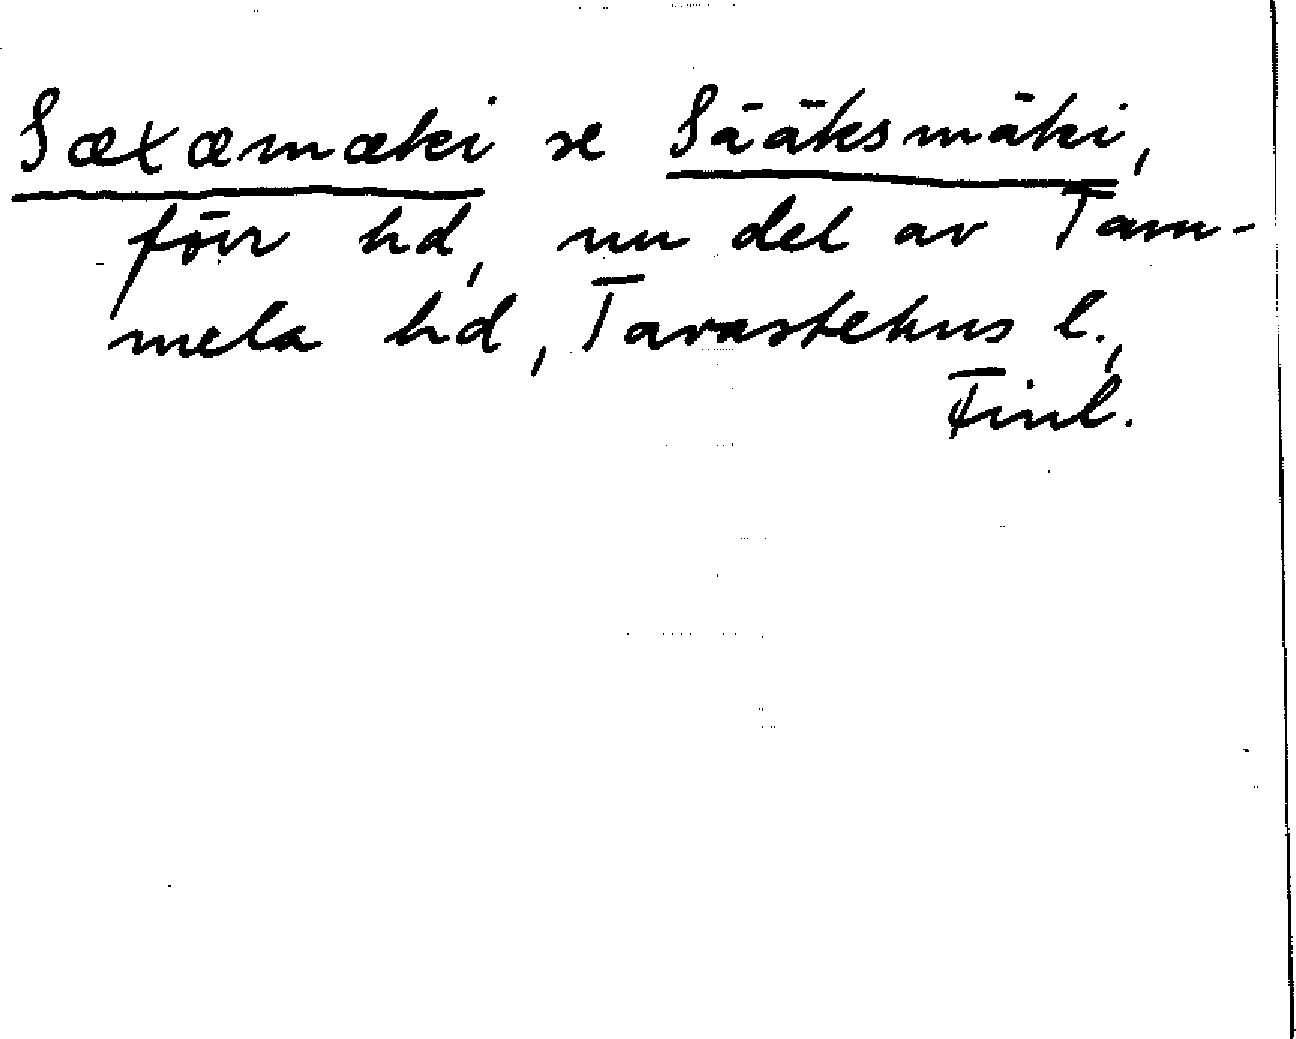 Sæxæmæki se Sääksmäki,
förr hd, nu del av Tam-
mela hd, Tavastehus l.,
Finl.